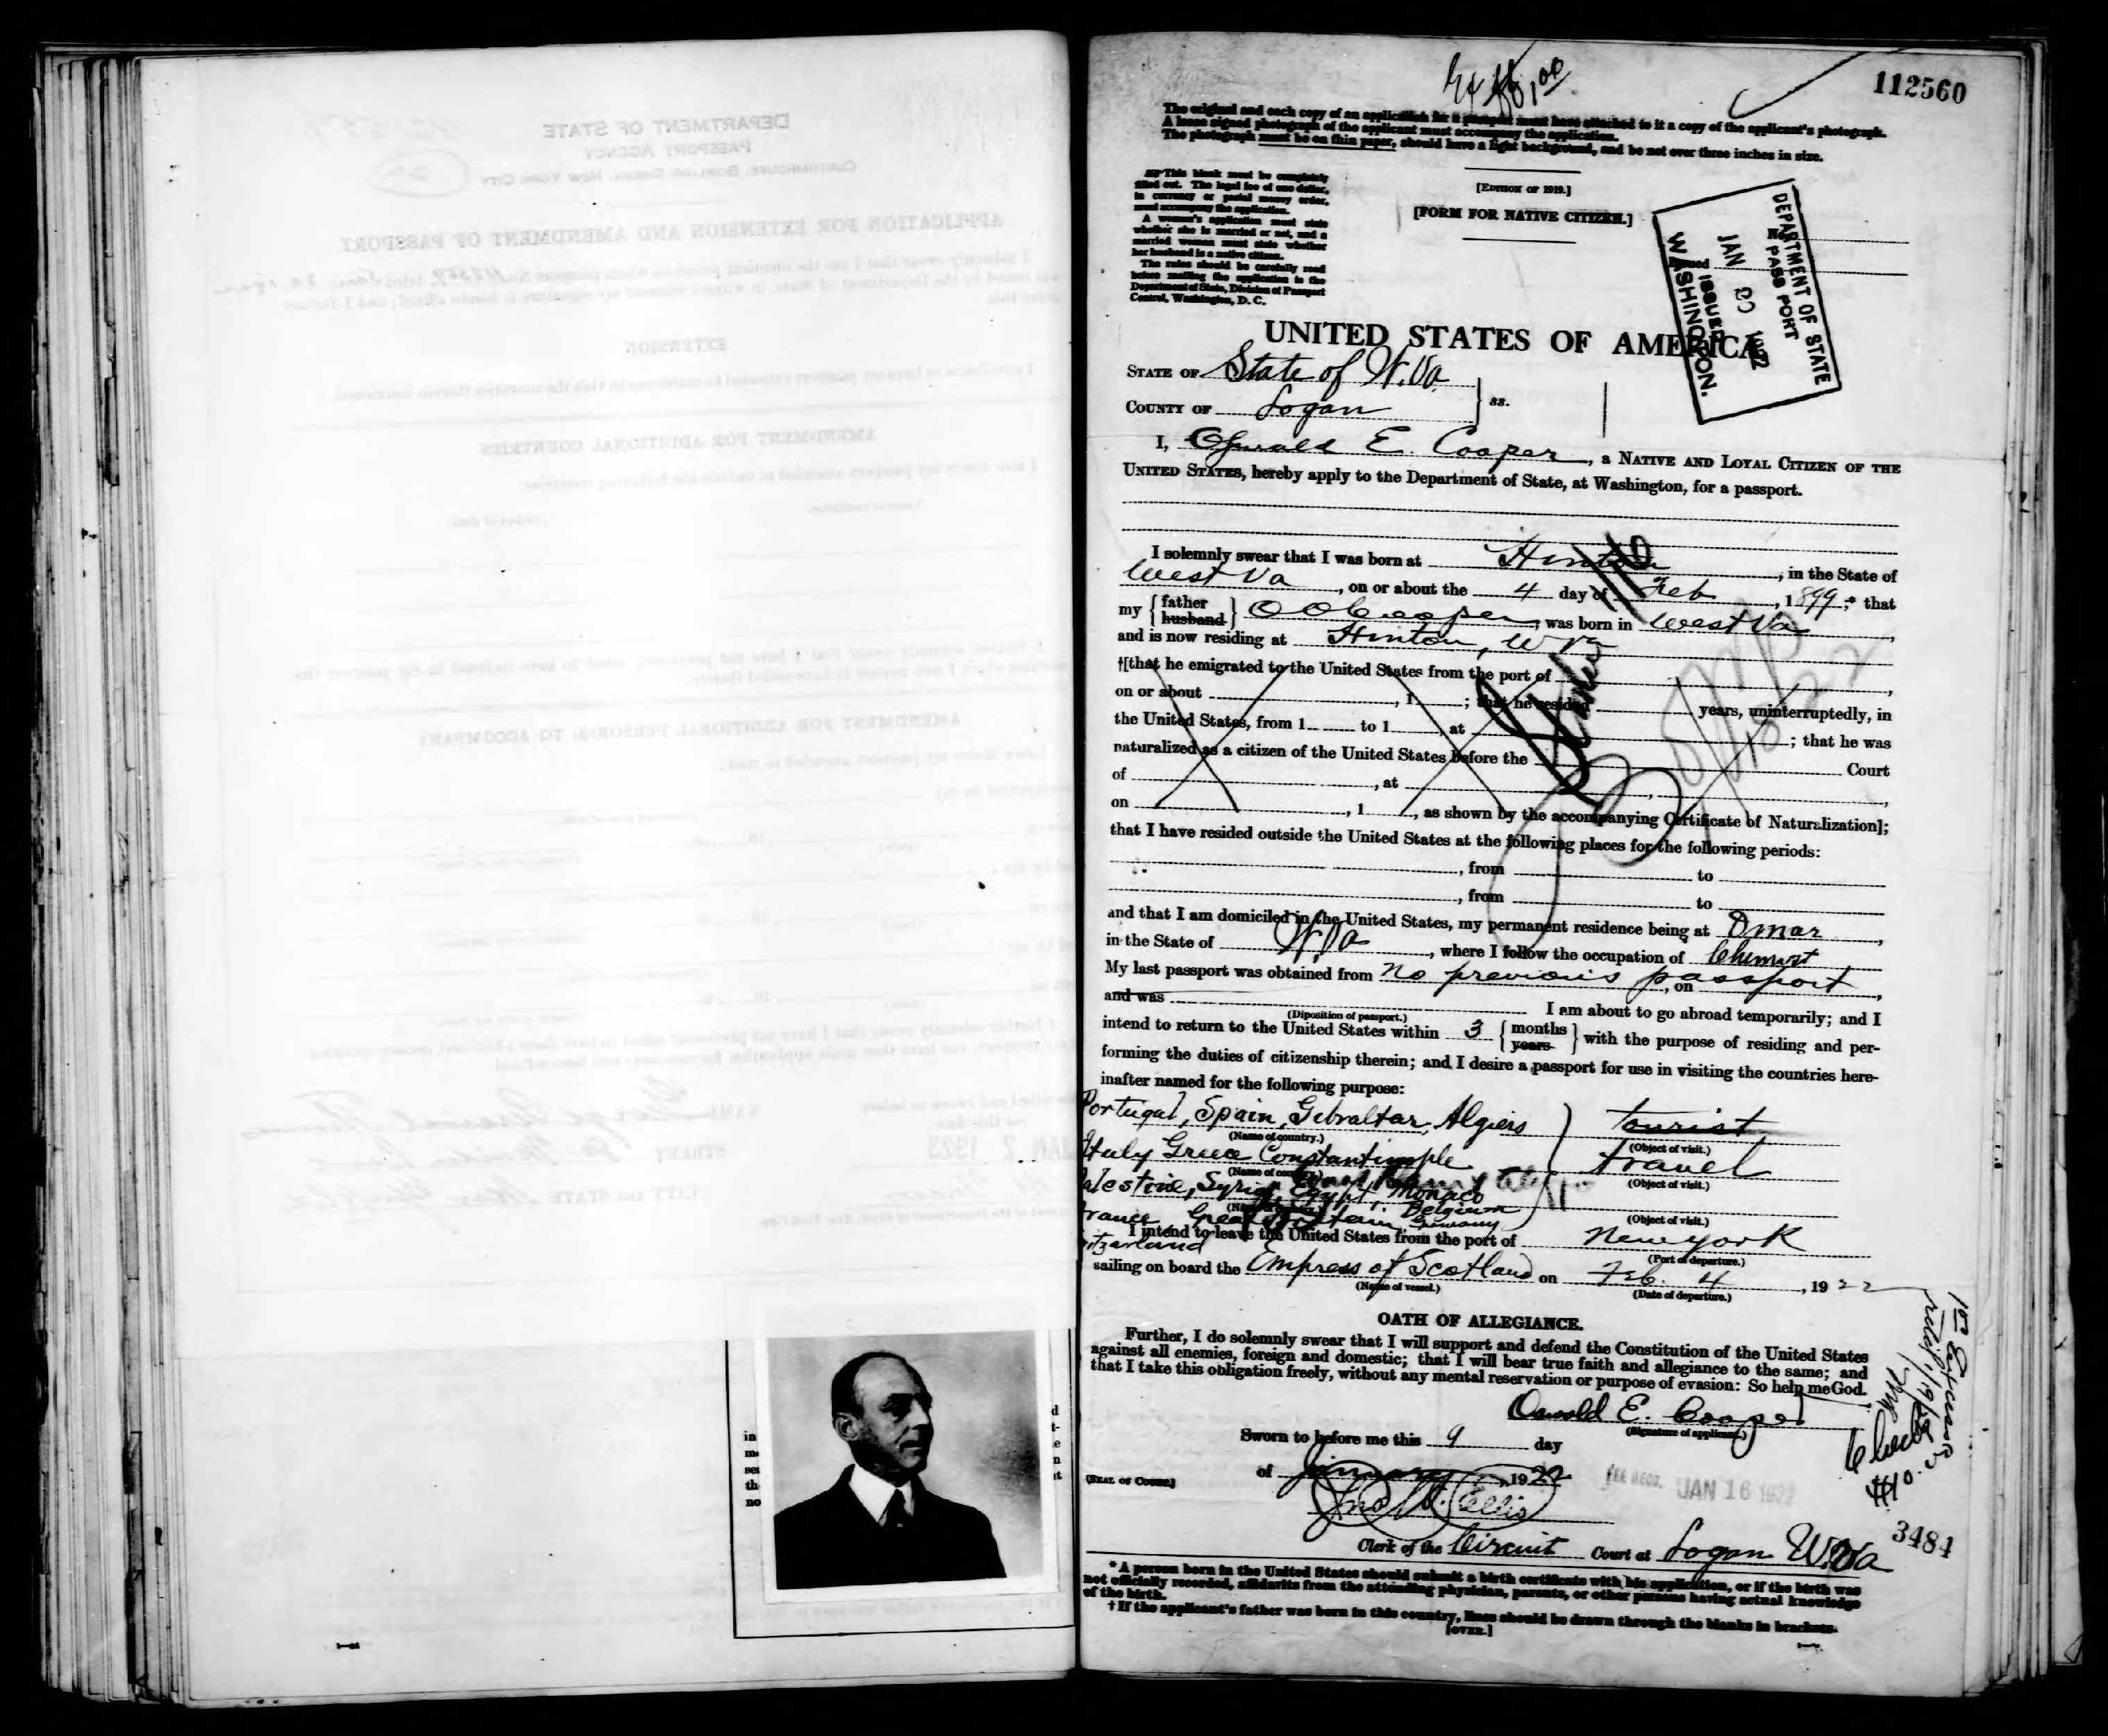 112560
The original and each copy of an application for a passport must have attached to it a copy of the applicant's photograph.
A loose signed photograph of the applicant must accompany the application.
The photograph must be on thin paper, should have a light background, and be not over three inches in size.
This blank must be completely
filled out. The legal fee of one dollar,
in currency or postal money order,
must accompany the application.
A woman's application must state
whether she is married or not, and a
married woman must state whether
her husband is a native citizen.
The rules should be carefully read
before mailing the application to the
Department of State, Division of Passport
Control, Washington, D. C.
[EDITION OF 1919.]
[FORM FOR NATIVE CITIZEN.]
No.
Issued
DEPARTMENT OF STATE
PASSPORT
JAN 20 1922
ISSUED
WASHINGTON.
UNITED STATES OF AMERICA
STATE OF State of W. Va
COUNTY OF Logan ss.
I, Oswald E. Cooper, a NATIVE AND LOYAL CITIZEN OF THE
UNITED STATES, hereby apply to the Department of State, at Washington, for a passport.
I solemnly swear that I was born at Hinton, in the State of
West Va, on or about the 4 day of Feb, 1899;* that
my {father husband} O O Cooper, was born in West Va,
and is now residing at Hinton, W Va
†[that he emigrated to the United States from the port of
on or about , 1 ; that he resided years, uninterruptedly, in
the United States, from 1 to 1 , at ; that he was
naturalized as a citizen of the United States before the Court
of , at ,
on , 1 , as shown by the accompanying Certificate of Naturalization];
that I have resided outside the United States at the following places for the following periods:
, from to
, from to
and that I am domiciled in the United States, my permanent residence being at Omar,
in the State of W. Va, where I follow the occupation of Chemist
My last passport was obtained from no previous passport, on ,
and was I am about to go abroad temporarily; and I
(Diposition of passport.)
intend to return to the United States within 3 {months years} with the purpose of residing and per-
forming the duties of citizenship therein; and I desire a passport for use in visiting the countries here-
inafter named for the following purpose:
Portugal, Spain, Gibraltar, Algiers tourist
(Name of country.) (Object of visit.)
Italy Greece Constantinople travel
(Name of country.) (Object of visit.)
Palestine, Syria, Egypt, Monaco
(Name of country.) (Object of visit.)
France Great Britain, Belgium
Germany
I intend to leave the United States from the port of New York
Switzerland (Port of departure.)
sailing on board the Empress of Scotland on Feb. 4, 1922
(Name of vessel.) (Date of departure.)
OATH OF ALLEGIANCE.
Further, I do solemnly swear that I will support and defend the Constitution of the United States
against all enemies, foreign and domestic; that I will bear true faith and allegiance to the same; and
that I take this obligation freely, without any mental reservation or purpose of evasion: So help me God.
Oswald E. Cooper
(Signature of applicant.)
Sworn to before me this 9 day
of January, 1922
[SEAL OF COURT.]
FEE RECD. JAN 16 1922
Ellis
Clerk of the Circuit Court at Logan W. Va
3484
* A person born in the United States should submit a birth certificate with his application, or if the birth was
not officially recorded, affidavits from the attending physician, parents, or other persons having actual knowledge
of the birth.
† If the applicant's father was born in this country, lines should be drawn through the blanks in brackets.
[OVER.]
DEPARTMENT OF STATE
PASSPORT AGENCY
CUSTOMHOUSE, BOWLING GREEN, NEW YORK CITY
APPLICATION FOR EXTENSION AND AMENDMENT OF PASSPORT
EXTENSION
AMENDMENT FOR ADDITIONAL COUNTRIES
AMENDMENT FOR ADDITIONAL PERSON(S) TO ACCOMPANY
NAME
STREET
CITY AND STATE
JAN 7 1923